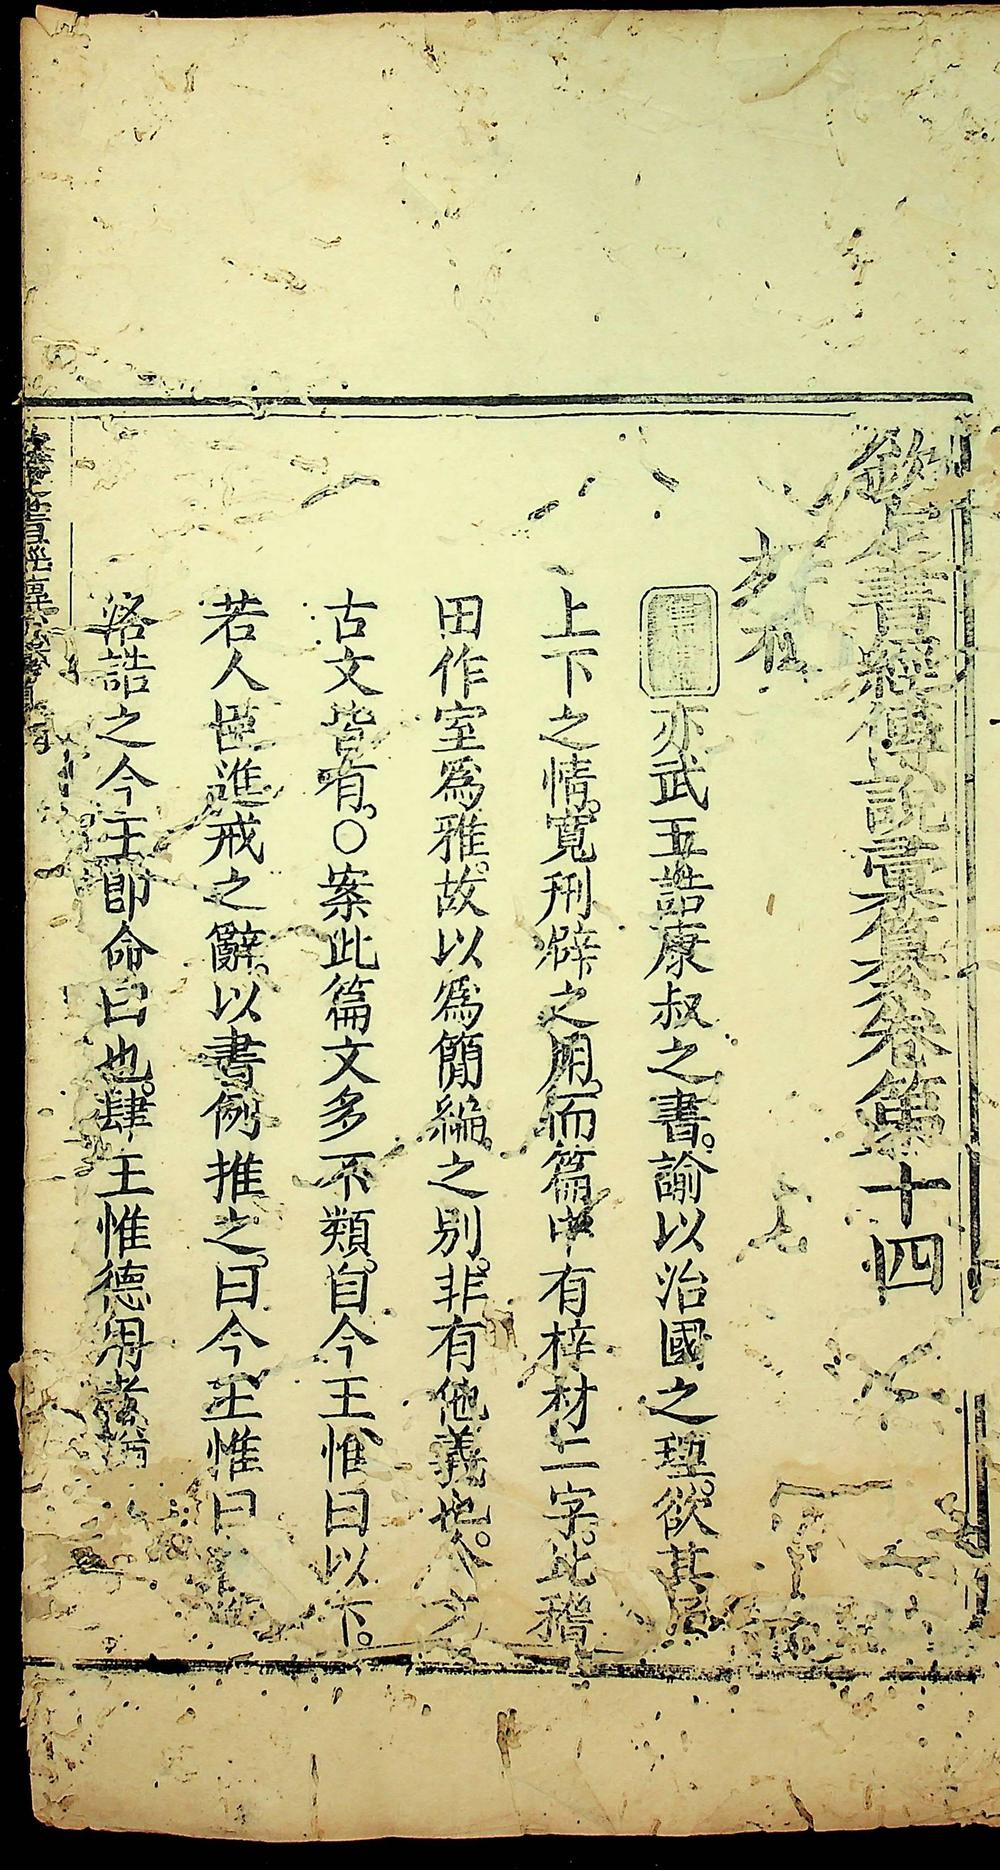 欽定書經傳說彙纂卷第十四
梓材
集傳亦武王誥康叔之書。諭以治國之理。欲其通
上下之情。寬刑辟之用。而篇中有梓材二字。比稽
田作室為雅。故以為簡編之別。非有他義也。今文
古文皆有。○案此篇文多不類。自今王惟曰以下。
若人臣進戒之辭。以書例推之。曰今王惟曰
洛誥之今王即命曰也。肆王惟德用者猶
欽定書經傳說彙纂